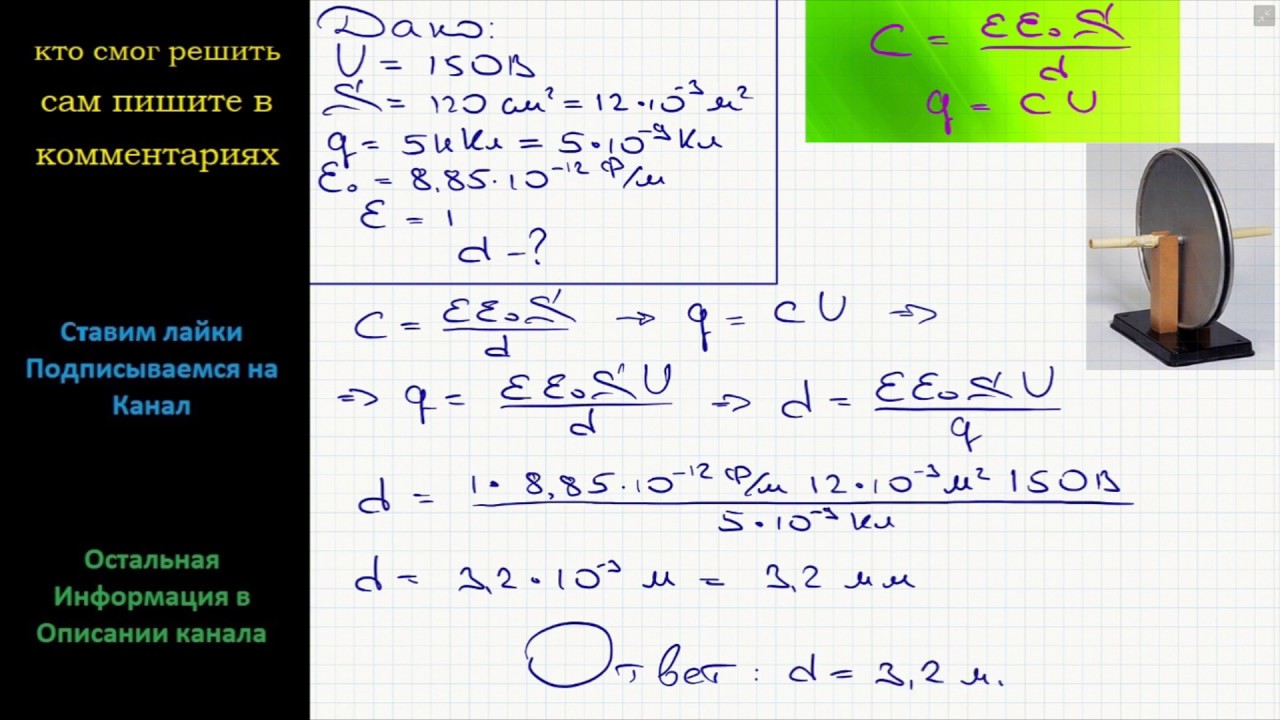 кто смог решить
сам пишите в
комментариях
Ставим лайки
Подписываемся на
Канал
Остальная
Информация в
Описании канала
Дано:
U = 150В
S = 120 см² = 12·10⁻³ м²
q = 5нКл = 5·10⁻⁹ Кл
ε₀ = 8,85·10⁻¹² Ф/м
ε = 1
d -?
C = εε₀S / d
q = CU
C = εε₀S / d → q = CU ⇒
⇒ q = εε₀SU / d ⇒ d = εε₀SU / q
d = 1· 8,85·10⁻¹² Ф/м 12·10⁻³ м² 150В / 5·10⁻⁹ Кл
d = 3,2·10⁻³ м = 3,2 мм
Ответ: d = 3,2 м.